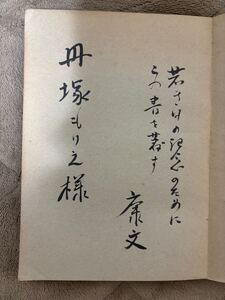 若き日の記念のために
この書を著す
康文
丹塚もりえ様